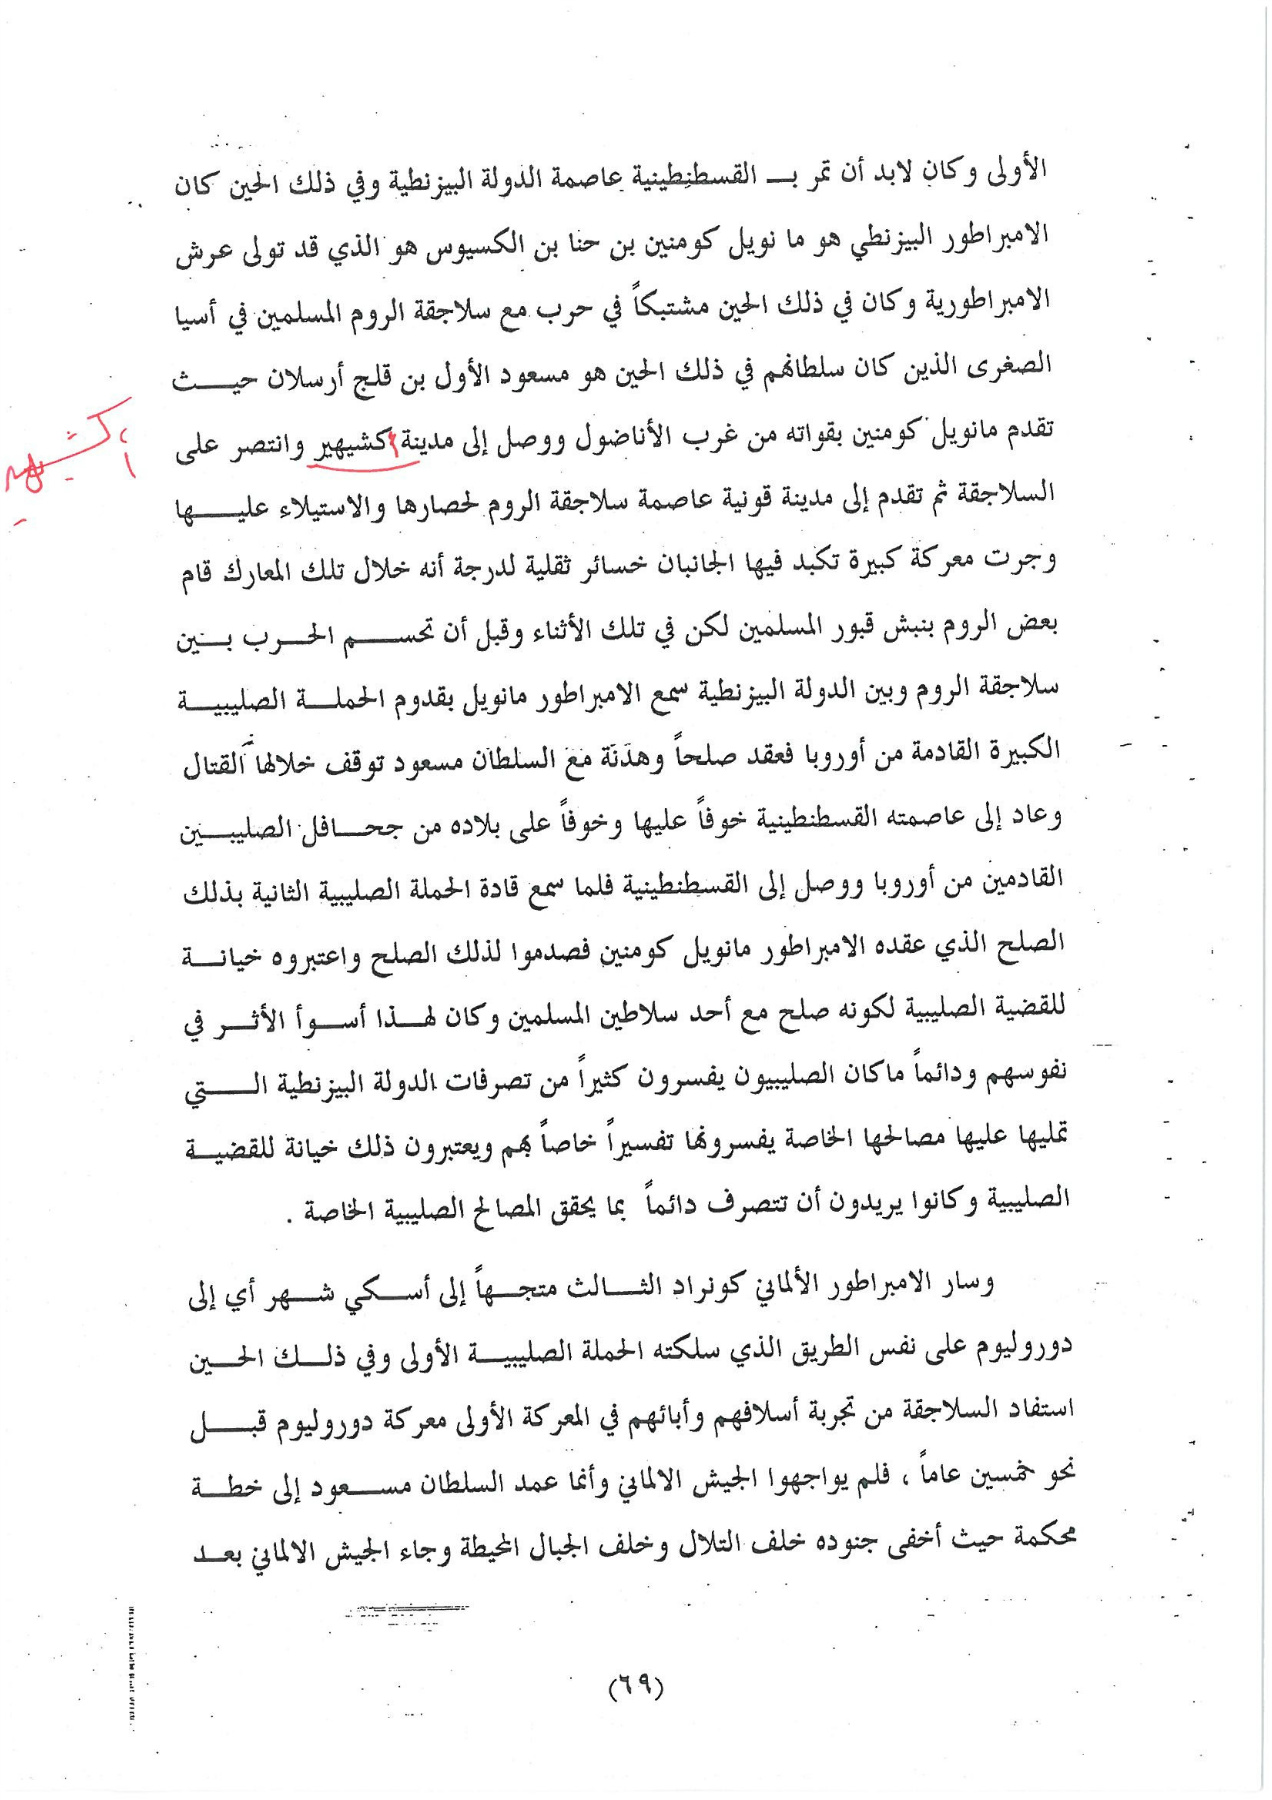 الأولى وكان لابد أن تمر بـ القسطنطينية عاصمة الدولة البيزنطية وفي ذلك الحين كان
الامبراطور البيزنطي هو ما نويل كومنين بن حنا بن الكسيوس هو الذي قد تولى عرش
الامبراطورية وكان في ذلك الحين مشتبكاً في حرب مع سلاجقة الروم المسلمين في أسيا
الصغرى الذين كان سلطانهم في ذلك الحين هو مسعود الأول بن قلج أرسلان حيث
تقدم مانويل كومنين بقواته من غرب الأناضول ووصل إلى مدينة كشيهير وانتصر على
السلاجقة ثم تقدم إلى مدينة قونية عاصمة سلاجقة الروم لحصارها والاستيلاء عليها
وجرت معركة كبيرة تكبد فيها الجانبان خسائر ثقلية لدرجة أنه خلال تلك المعارك قام
بعض الروم بنبش قبور المسلمين لكن في تلك الأثناء وقبل أن تحسم الحرب بين
سلاجقة الروم وبين الدولة البيزنطية سمع الامبراطور مانويل بقدوم الحملة الصليبية
الكبيرة القادمة من أوروبا فعقد صلحاً وهدنة مع السلطان مسعود توقف خلالها القتال
وعاد إلى عاصمته القسطنطينية خوفاً عليها وخوفاً على بلاده من جحافل الصليبين
القادمين من أوروبا ووصل إلى القسطنطينية فلما سمع قادة الحملة الصليبية الثانية بذلك
الصلح الذي عقده الامبراطور مانويل كومنين فصدموا لذلك الصلح واعتبروه خيانة
للقضية الصليبية لكونه صلح مع أحد سلاطين المسلمين وكان لهذا أسوأ الأثر في
نفوسهم ودائماً ماكان الصليبيون يفسرون كثيراً من تصرفات الدولة البيزنطية التي
تمليها عليها مصالحها الخاصة يفسرونها تفسيراً خاصاً بهم ويعتبرون ذلك خيانة للقضية
الصليبية وكانوا يريدون أن تتصرف دائماً بما يحقق المصالح الصليبية الخاصة .
وسار الامبراطور الألماني كونراد الثالث متجهاً إلى أسكي شهر أي إلى
دوروليوم على نفس الطريق الذي سلكته الحملة الصليبية الأولى وفي ذلك الحين
استفاد السلاجقة من تجربة أسلافهم وأبائهم في المعركة الأولى معركة دوروليوم قبل
نحو خمسين عاماً ، فلم يواجهوا الجيش الالماني وأنما عمد السلطان مسعود إلى خطة
محكمة حيث أخفى جنوده خلف التلال وخلف الجبال المحيطة وجاء الجيش الالماني بعد
(٦٩)